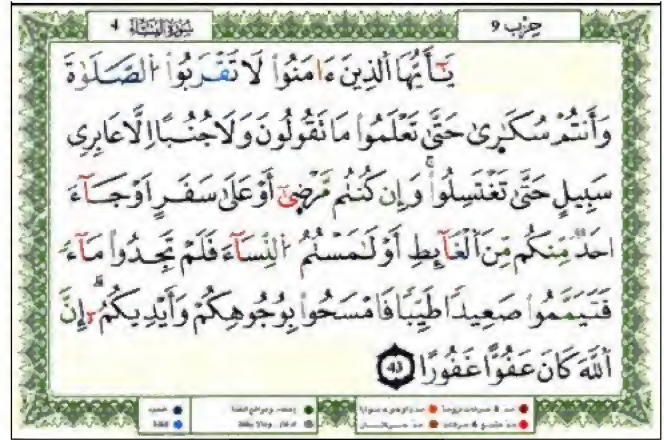 حزب 9
سورة النساء 4
يَـٰٓأَيُّهَا اَ۬لذِينَ ءَامَنُواْ لَا تَقْرَبُواْ اُ۬لصَّلَوٰةَ
وَأَنتُمْ سُكَـٰرِىٰ حَتَّىٰ تَعْلَمُواْ مَا تَقُولُونَ وَلَا جُنُبًا اِلَّا عَابِرِى
سَبِيلٍ حَتَّىٰ تَغْتَسِلُواْ ۚ وَإِن كُنتُم مَّرْضِىٰٓ أَوْ عَلَىٰ سَفَرٍ اَوْ جَآءَ
احَدٌ مِّنكُم مِّنَ اَ۬لْغَآئِطِ أَوْ لَـٰمَسْتُمُ اُ۬لنِّسَآءَ فَلَمْ تَجِدُواْ مَآءً
فَتَيَمَّمُواْ صَعِيدًا طَيِّبًا فَامْسَحُواْ بِوُجُوهِكُمْ وَأَيْدِيكُمُۥٓ ۗ إِنَّ
اَ۬للَّهَ كَانَ عَفُوًّا غَفُورًا 43